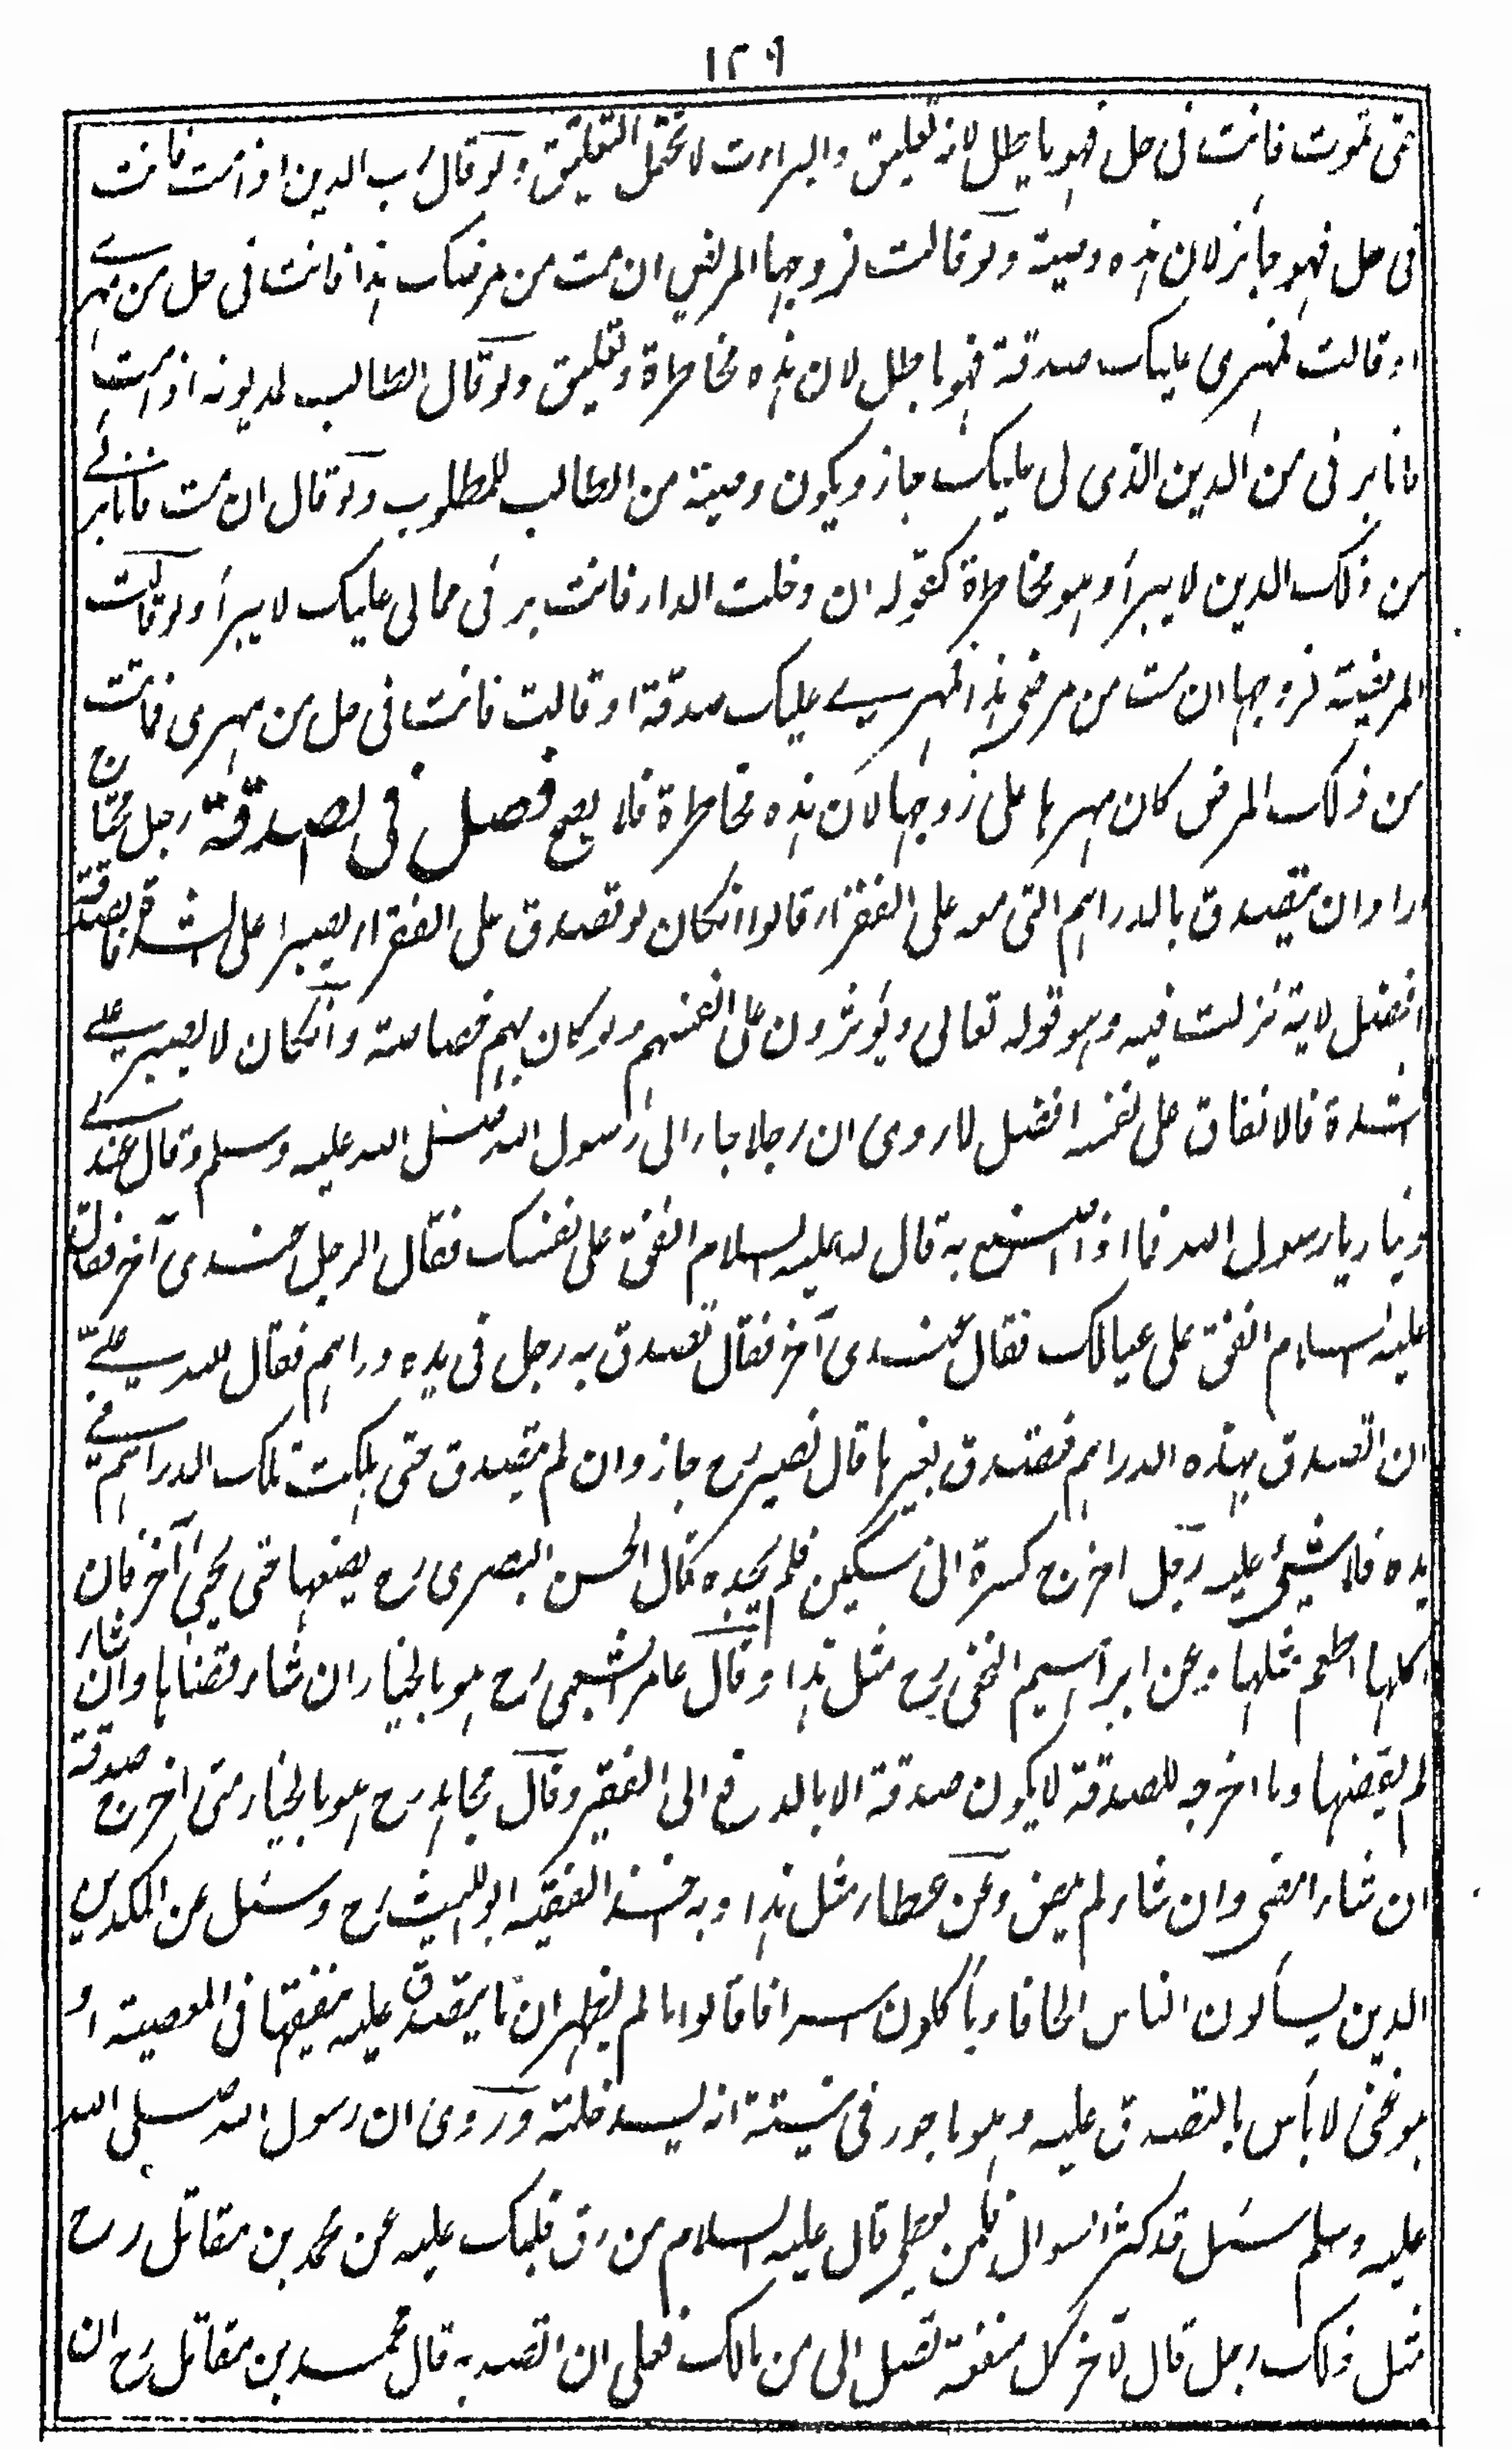 ١٢٩
حتى تموت فانت فى حل فهو باطل لانه تعليق والبراءت لا تحتمل التعليق ولو قال رب الدين اذا مت فانت
فى حل فهو جائز لان هذه وصية ولو قالت لزوجها المريض ان مت من مرضك هذا فانت فى حل من مهرى
او قالت فمهرى عليك صدقة فهو باطل لان هذه مخاطرة وتعليق ولو قال الطالب لمديونه اذا مت
فانا برئ من الدين الذى لى عليك جاز ويكون وصية من الطالب للمطلوب ولو قال ان مت فانا برئ
من ذلك الدين لا يبرأ وهو مخاطرة كقوله ان دخلت الدار فانت برئ مما لى عليك لا يبرأ ولو قالت
المريضة لزوجها ان مت من مرضى هذا فمهرى عليك صدقة او قالت فانت فى حل من مهرى فماتت
من ذلك المرض كان مهرها على زوجها لان هذه مخاطرة فلا يصح فصل فى الصدقة رجل محتاج
اراد ان يتصدق بالدراهم التى معه على الفقراء قالوا انكان لو تصدق على الفقراء يصبر على الشدة فالصدقة
افضل لاية نزلت فيه وهو قوله تعالى ويؤثرون على انفسهم ولو كان بهم خصاصة وانكان لا يصبر على
الشدة فالانفاق على نفسه افضل لما روى ان رجلا جاء الى رسول الله صلى الله عليه وسلم وقال عندى
دينار يا رسول الله فما اذا اصنع به قال له عليه السلام انفق على نفسك فقال الرجل عندى آخر فقال
عليه السلام انفق على عيالك فقال عندى آخر فقال تصدق به رجل فى يده دراهم فقال لله على
ان اتصدق بهذه الدراهم فتصدق بغيرها قال نصير رح جاز وان لم يتصدق حتى هلكت تلك الدراهم فى
يده فلا شيئ عليه رجل اخرج كسرة الى مسكين فلم يجده قال الحسن البصرى رح يضعها حتى يجئ آخر فان
اكلها اطعم مثلها وعن ابراهيم النخعى رح مثل هذا وقال عامر الشعبى رح هو بالخيار ان شاء قضاها وان شاء
لم يقضها وما اخرجه للصدقة لا يكون صدقة الا بالدفع الى الفقير وقال مجاهد رح هو بالخيار متى اخرج صدقة
ان شاء امضى وان شاء لم يمض وعن عطاء مثل هذا وبه اخذ الفقيه ابو الليث رح وسئل عن المكدين
الذين يسألون الناس الحافا ويأكلون اسرافا قالوا ما لم يظهر ان ما يتصدق عليه ينفقها فى المعصية او
هو غنى لا بأس بالتصدق عليه وهو ماجور فى نيته انه ليسد خلته وروى ان رسول الله صلى الله
عليه وسلم سئل قد كثر السوال فلمن نعطى قال عليه السلام من رق قلبك عليه عن محمد بن مقاتل رح
مثل ذلك رجل قال لآخر كل منفعة تصل الى من مالك فعلى ان اتصد به قال محمد بن مقاتل رح ان